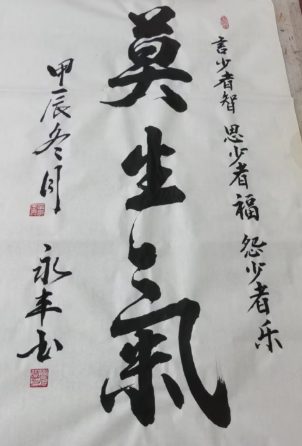 言少者智 思少者福 怨少者乐
莫生气氣
甲辰冬月
永丰书